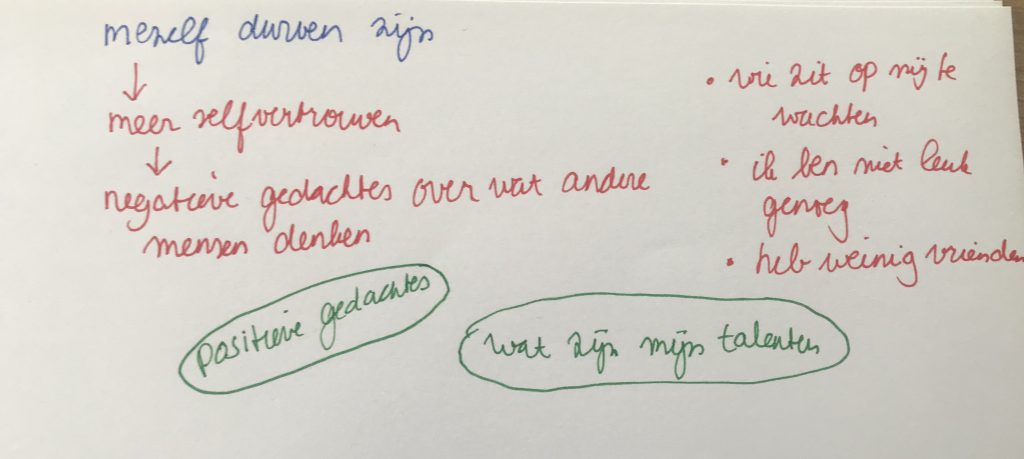 mezelf durven zijn
↓
meer zelfvertrouwen
↓
negatieve gedachtes over wat andere
mensen denken
• wie zit op mij te
wachten
• ik ben niet leuk
genoeg
• heb weinig vrienden
positieve gedachtes
wat zijn mijn talenten